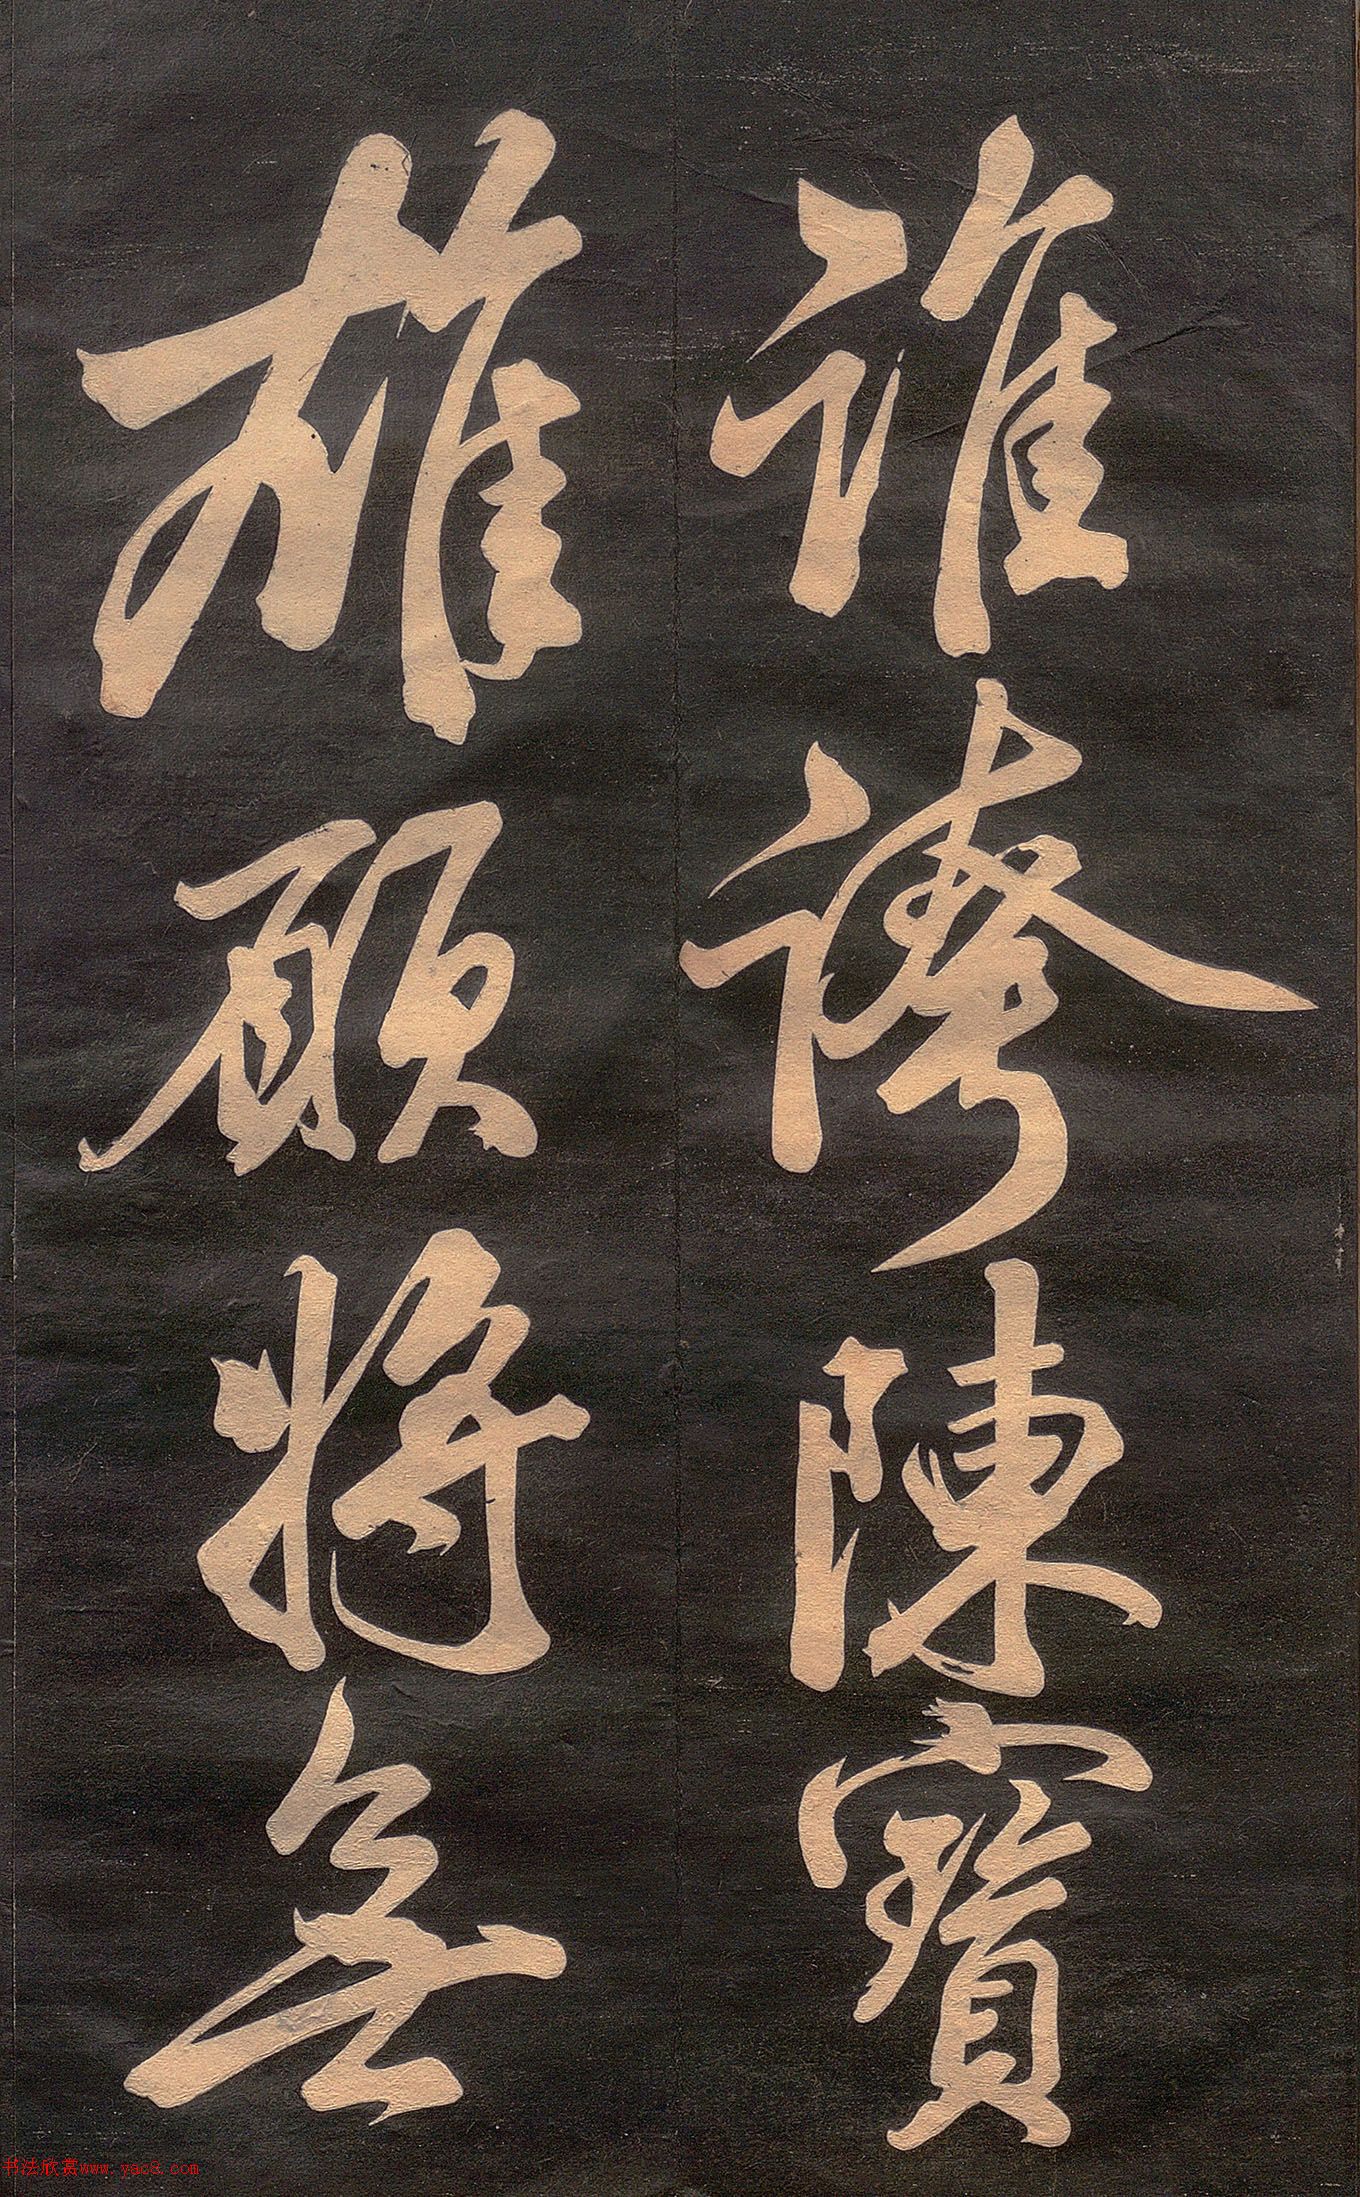 誰誇陳寶
雄願將無
书法欣赏www.yac8.com